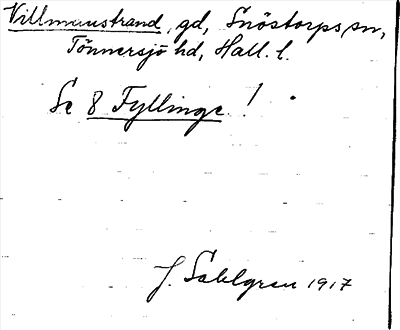 Villmanstrand, gd, Snöstorps sn,
Tönnersjö hd, Hall. l.
Se 8 Fyllinge !
J. Sahlgren 1917